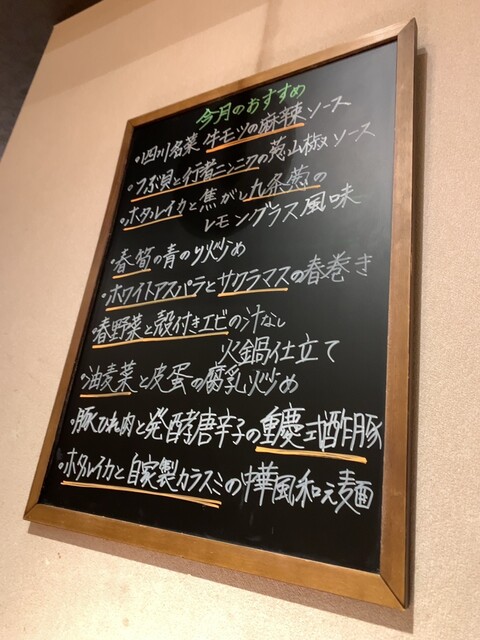 今月のおすすめ
・四川名菜 牛モツの麻辣ソース
・つぶ貝と行者ニンニクの葱山椒ソース
・ホタルイカと焦がし九条葱の
レモングラス風味
・春筍の青のり炒め
・ホワイトアスパラとサクラマスの春巻き
・春野菜と殻付きエビの汁なし
火鍋仕立て
・油麦菜と皮蛋の腐乳炒め
・豚ひれ肉と発酵唐辛子の重慶式酢豚
・ホタルイカと自家製カラスミの中華風和え麺